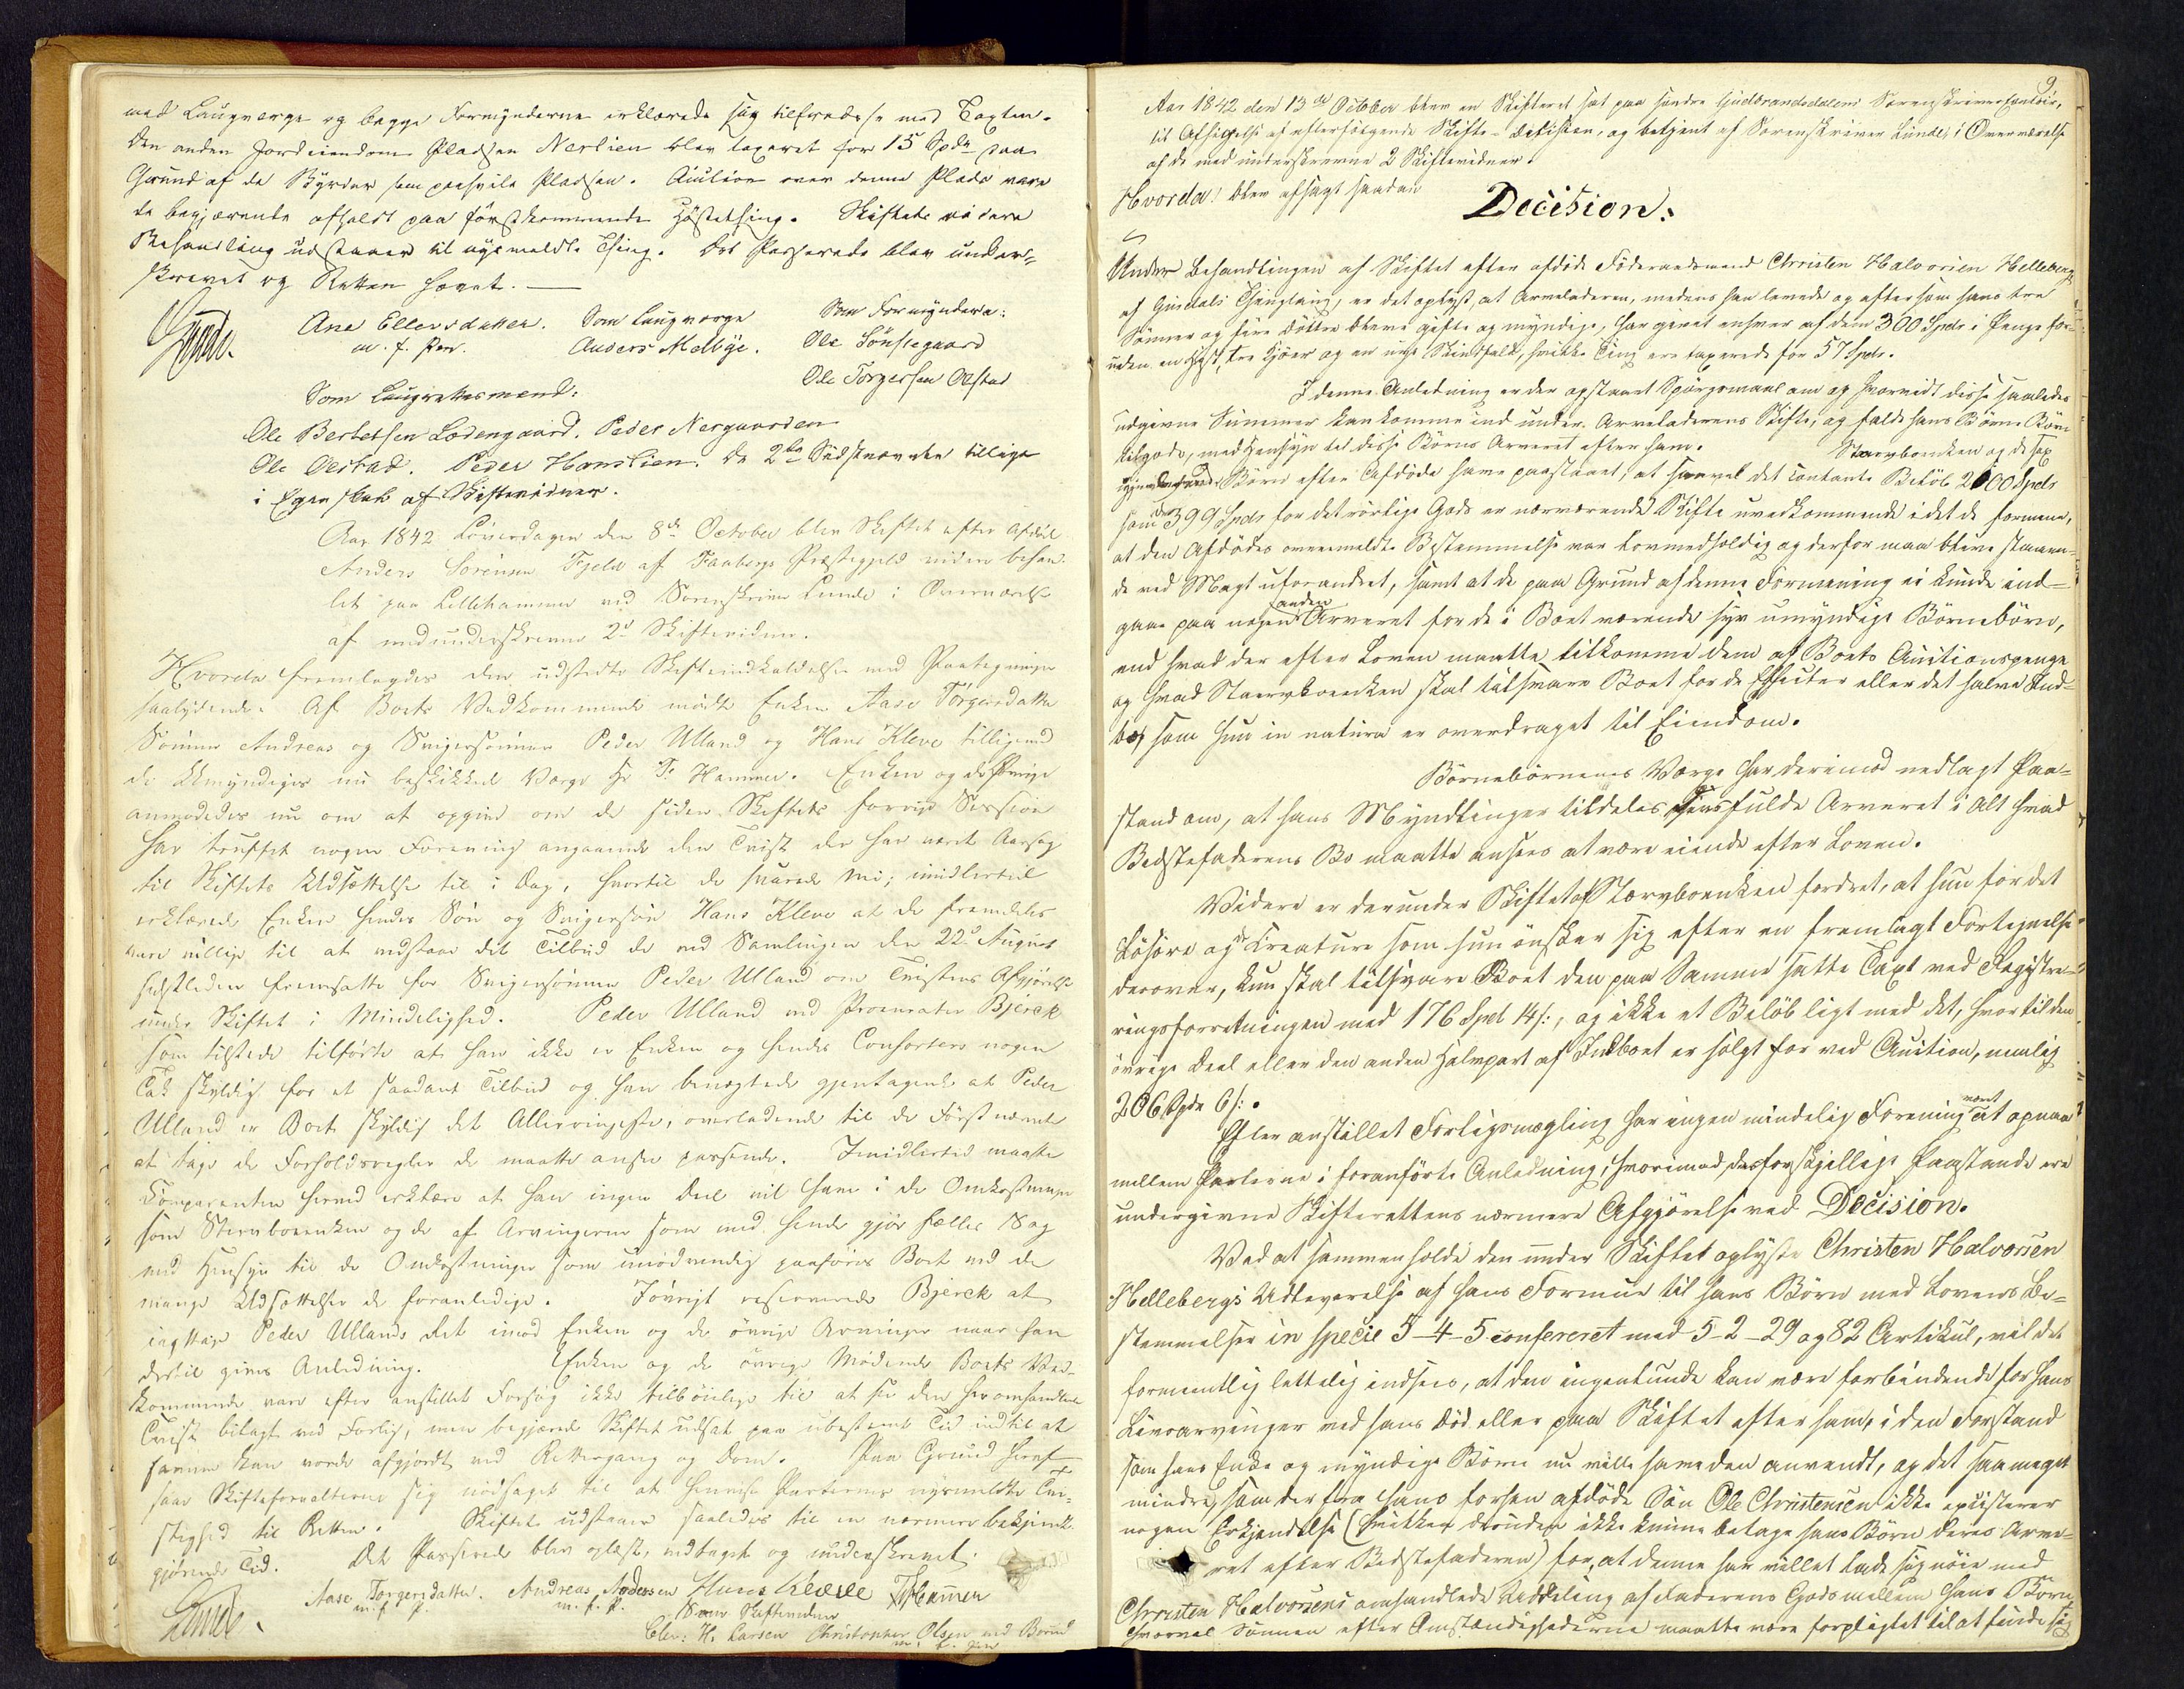 med Laugværge og begge Formynderne erklærede sig tilfredse med Taxten.
Den anden Jordeiendom Pladsen Nerlien blev taxeret for 15 Spd paa
Grund af de Byrder som paahvile Pladsen. Auction over denne Plads være
de begjærende afholdt paa førstkommende Høstething. Skiftets videre
Behandling udstaaer til nysmeldte Thing. Det Passerede blev under-
skrevet og Retten hævet.
Lunde.
Ane Ellevsdatter. Som Laugværge Som Formyndere:
m. f. Pen. Anders Melbye. Ole Sønstegaard
Ole Torgersen Olstad
Som Laugrettesmænd:
Ole Bertelsen Lodengaard. Peder Nergaarden
Ole Olstad. Peder Hanslien. De 2de Sidstnævnte tillige
i Egenskab af Skiftevidner.
Aar 1842 Løverdagen den 8de October blev Skiftet efter Afdøde
Anders Sørensen Fjeld af Faabergs Præstegjeld videre behand-
let paa Lillehammer ved Sorenskriver Lunde i Overværelse
af medunderskrevne 2de Skiftevidner.
Hvorda fremlagdes den udstedte Skifteindkaldelse med Paategninger
saalydende. Af Boets Vedkommende mødte Enken Aase Torgersdatter
Sønnen Andreas og Svigersønnen Peder Ulland og Hans Kleve tilligemed
de Umyndiges nu beskikkede Værge Hr T. Hammer. Enken og de Øvrige
anmodedes nu om at opgive om de siden Skiftets forrige Session
har truffet nogen Forening angaaende den Tvist der har været Aarsag
til Skiftets Udsættelse til i Dag, hvortil de svarede Nei; imidlertid
erklærede Enken hendes Søn og Svigersøn Hans Kleve at de fremdeles
vare villige til at vedstaae det Tilbud de ved Samlingen den 22de August
sidstleden fremsatte for Svigersønnen Peder Ulland om Tvistens Afgjørelse
under Skiftet i Mindelighed. Peder Ulland ved Procurator Bjerck
som tilstede tilførte at han ikke er Enken og hendes Consorters nogen
Tak skyldig for et saadant Tilbud og han benægtede gjentagende at Peder
Ulland er Boet skyldig det Allerringeste, overladende til de Førstnævnte
at tage de Forholdsregler de maatte ansee passende. Imidlertid maatte
Comparenten herved erklære at han ingen Deel vil have i de Omkostninger
som Stervboenken og de af Arvingerne som med hende gjør fælles Sag
med Hensyn til de Omkostninger som unødvendig paaføres Boet ved de
mange Udsættelser de foranledige. Iøvrigt reserverede Bjerck at
iagttage Peder Ullands Ret imod Enken og de øvrige Arvinger naar han
dertil gives Anledning. Enken og de øvrige Mødende Boets Ved-
kommende vare efter anstillet Forsøg ikke tilbøielige til at see den heromhandlede
Tvist bilagt ved Forlig, men begjærede Skiftet udsat paa ubestemt Tid indtil at
samme kan vorde afgjordt ved Rettergang og Dom. Paa Grund heraf
saae Skifteforvalteren sig nødsaget til at henvise Parterne nysmeldte Tvi-
stighed til Retten. Skiftet udstaaer saaledes til en nærmere bekjendt-
gjørende Tid. Det Passerede blev oplæst, vedtaget og underskrevet.
Lunde.
Aase Torgersdatter. Andreas Andersen Hans Kleve T Hammer
m. f. P. m. f. P. Som Skiftevidner
Elev: H. Larsen Christopher Olsen ved Borud
m. f. Pen
9
Aar 1842 den 13de October blev en Skifteret sat paa søndre Gudbrandsdalens Sorenskrivercontoir,
til Afsigelse af efterfølgende Skifte-Decision, og betjent af Sorenskriver Lunde, i Overværelse
af de med underskrevne 2 Skiftevidner.
Hvorda! blev afsagt saadan
Decision:
Under Behandlingen af Skiftet efter afdøde Føderaadsmand Christen Halvorsen Helleberg
af Gusdals Thinglaug, er det oplyst, at Arveladeren, medens han levede og eftersom hans tre
Sønner og fire Døttre bleve gifte og myndige, har givet enhver af dem 300 Spdr i Penge for-
uden en Hest, tre Kjøer og en ung Skindfald, hvilke Ting ere taxerede for 57 Spdr.
I denne Anledning er der opstaaet Spørgsmaal om og hvorvidt disse saaledes
udgivne Summer kan komme ind under Arveladerens Skifte, og falde hans Børne Børn
tilgode, med Hensyn til disse Børns Arveret efter ham. Stervboenken og de sex
Børn efter Afdøde have paastaaet, at saavel det contante Beløb 2100 Spdr
som de 399 Spdr for det rørlige Gods er nærværende Skifte uvedkommende i det de formene,
at den Afdødes ovenmeldte Bestemmelse var lovmedholdig og derfor maa blive staaen-
de ved Magt uforandret, samt at de paa Grund af denne Formening ei kunde ind-
gaae paa nogen anden Arveret for de i Boet værende syv umyndige Børnebørn,
end hvad der efter Loven maatte tilkomme dem af Boets Auctionspenge
og hvad Stervboenken skal tilsvare Boet for de Effecter eller det halve Ind-
boe som hun in natura er overdraget til Eiendom.
Børnebørnenes Værge har derimod nedlagt Paa-
stand om, at hans Myndlinger tildeles fulde Arveret i Alt hvad
Bedstefaderens Bo maatte ansees at være eiende efter Loven.
Videre er derunder Skiftet af Stervboenken fordret, at hun for det
Løsøre og de Creature som hun ønsker sig efter en fremlagt Fortegnelse
derover, kun skal tilsvare Boet den paa Samme satte Taxt ved Registre-
ringsforretningen med 176 Spd 14 s:, og ikke et Beløb ligt med det, hvortil den
øvrige Deel eller den anden Halvpart af Indboet er solgt for ved Auction, nemlig
206 Spdr 6 s:.
Efter anstillet Forligsmægling har ingen mindelig Forening været at opnaae
mellem Parterne i foranførte Anledning, hvorimod forskjellige Paastande ere
undergivne Skifterettens nærmere Afgjørelse ved Decision.
Ved at sammenholde den under Skiftet oplyste Christen Halvorsen
Hellebergs Udleverelse af hans Formue til hans Børn med Lovens Be-
stemmelser in specie 5-4-5 confereret med 5-2-29 og 82 Artikul, vil det
formeentlig lettelig indsees, at den ingenlunde kan være forbindende for hans
Livsarvinger ved hans Død eller paa Skiftet efter ham, i den Forstand
som hans Enke og myndige Børn nu ville have den anvendt, og det saa meget
mindre, som der fra hans forhen afdøde Søn Ole Christensen ikke existerer
nogen Erkjendelse (hvilken desuden ikke kunne betage hans Børn deres Arve-
ret efter Bedstefaderen) for, at denne har villet lade sig nøie med
Christen Halvorsens omhandlede Uddeling af Faderens Gods mellem hans Børn,
hvorvel Sønnen efter Omstændighederne maatte være forpligtet til at finde sig